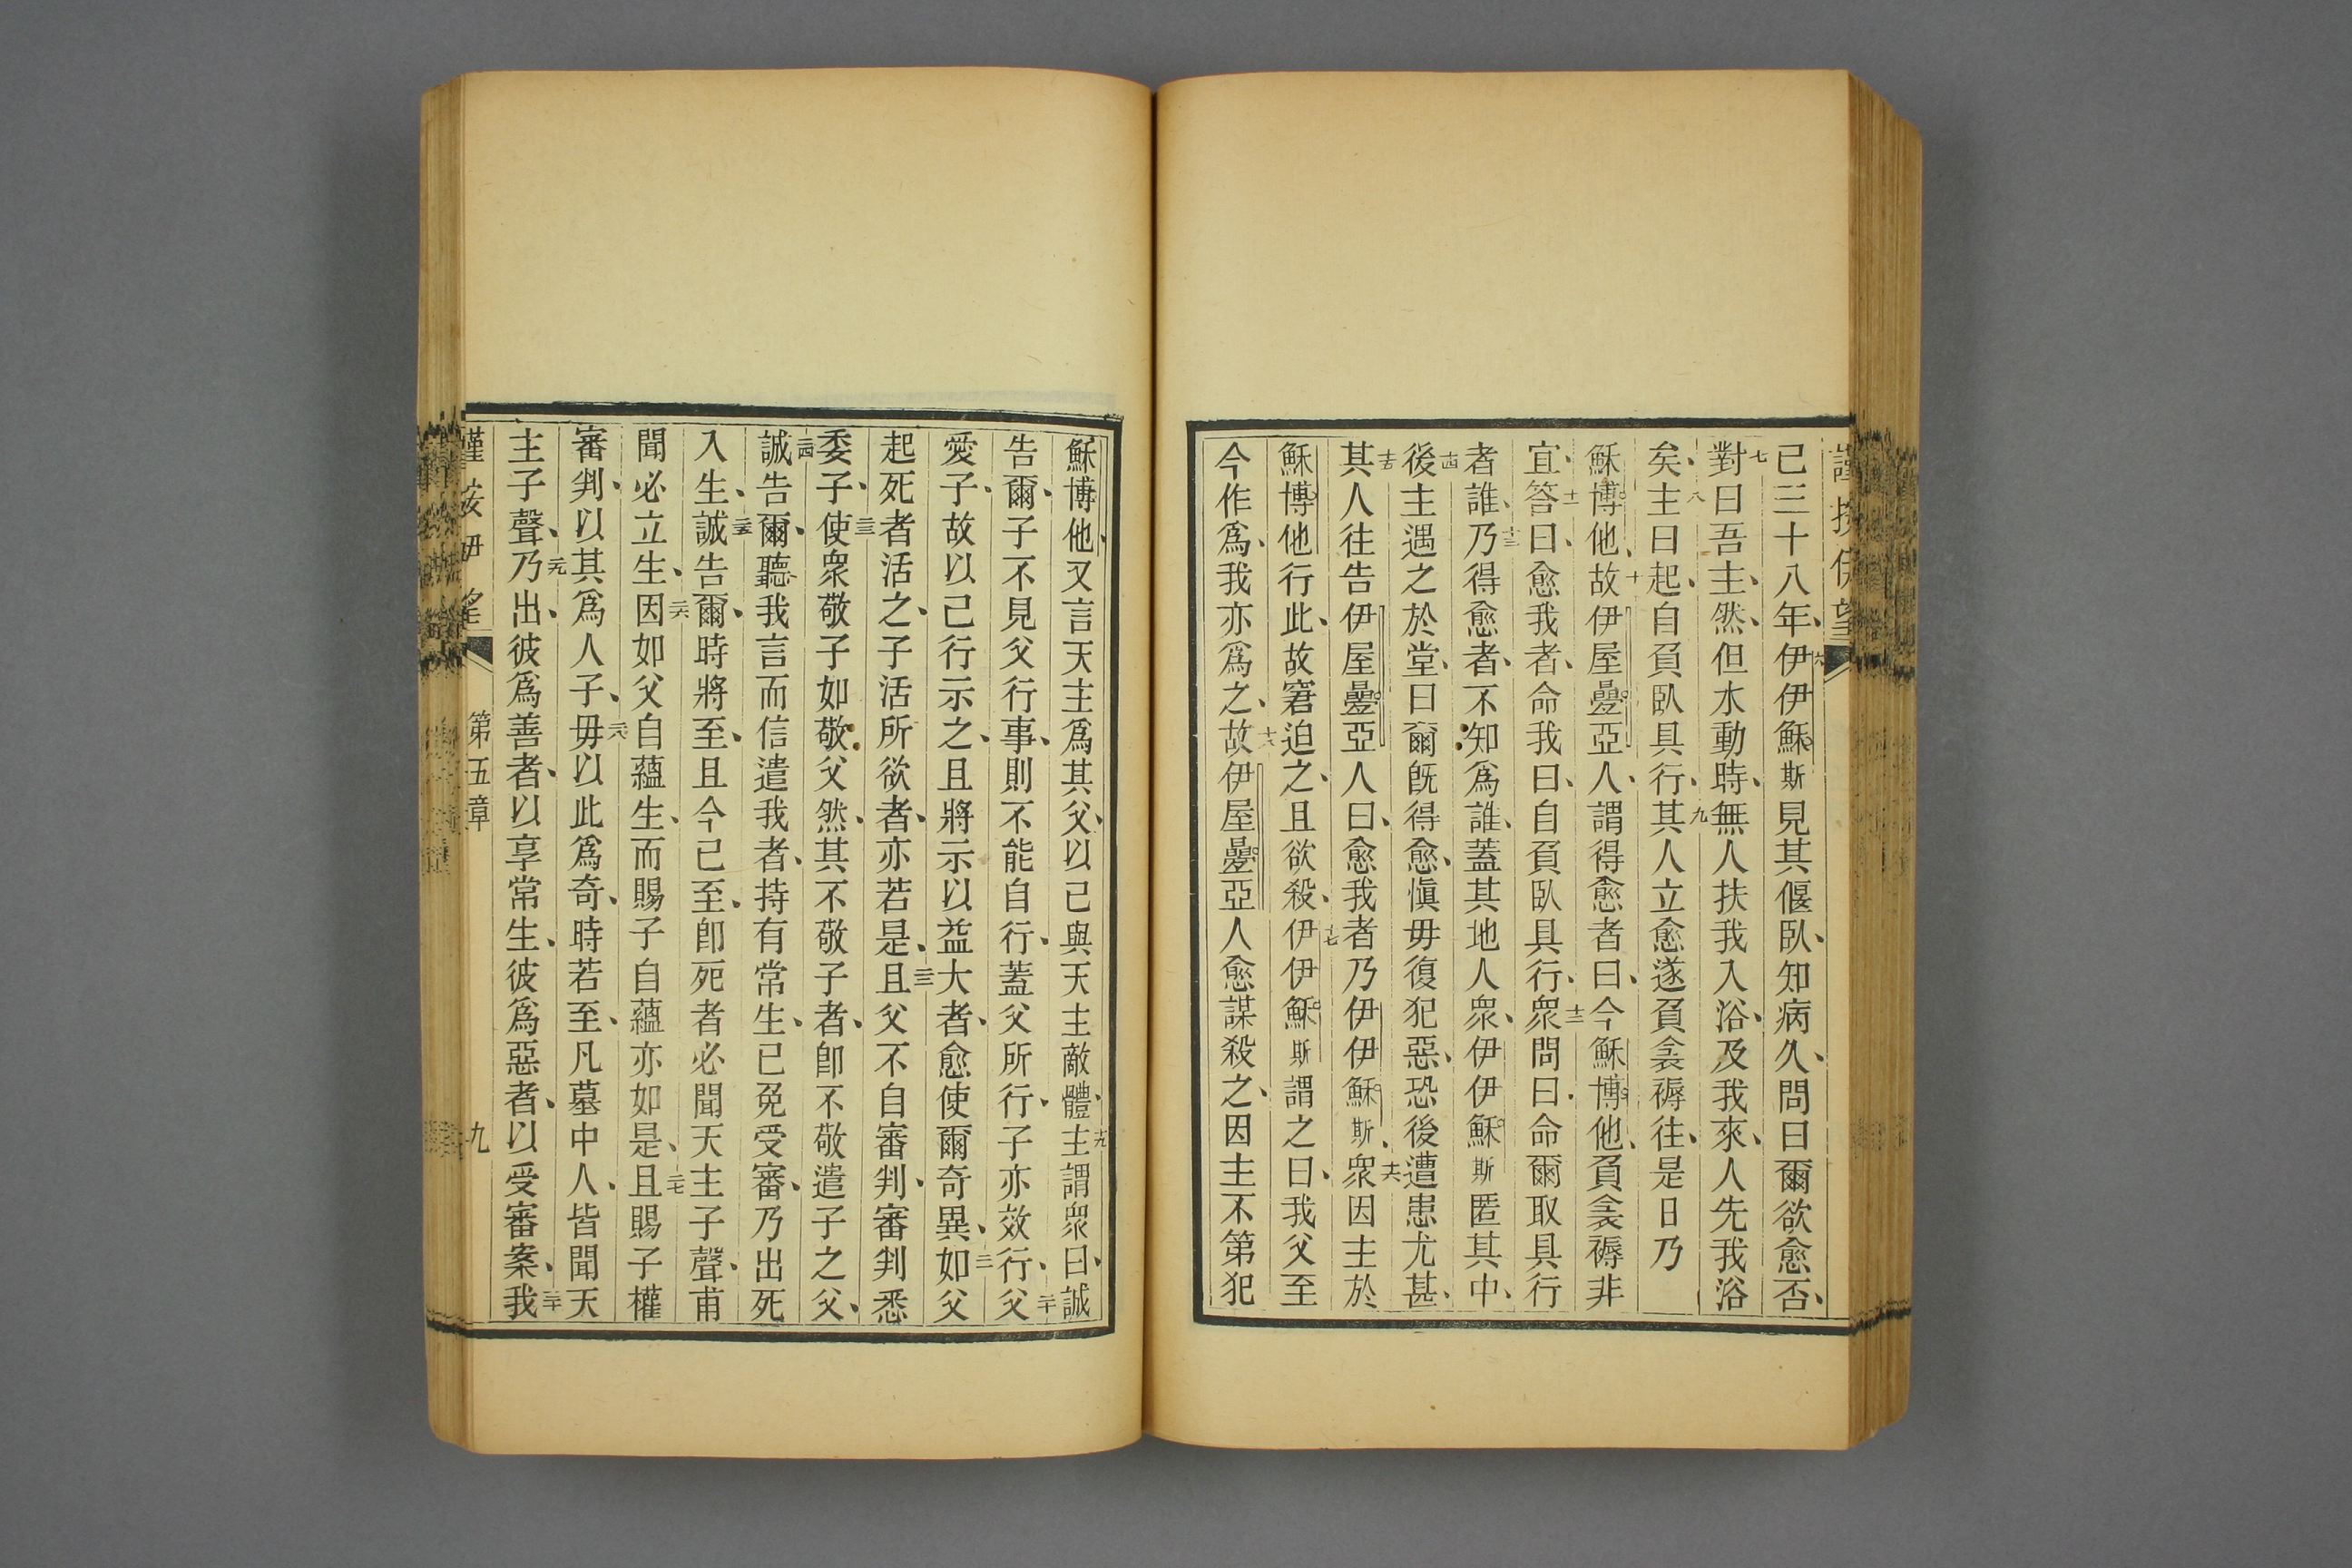 已三十八年、六伊伊穌斯見其偃臥、知病久、問曰爾欲愈否、
七對曰吾主、然、但水動時、無人扶我入浴、及我來、人先我浴
矣、八主曰起、自負臥具行、九其人立愈遂負衾褥往、是日乃
穌博他、十故伊屋疊亞人、謂得愈者曰、今穌博他、負衾褥非
宜、十一答曰、愈我者、命我曰、自負臥具行、十二衆問曰、命爾取具行
者誰、十三乃得愈者、不知爲誰、蓋其地人衆、伊伊穌斯匿其中、
十四後主遇之於堂、曰爾既得愈、愼毋復犯惡、恐後遭患尤甚、
十五其人往告伊屋疊亞人曰、愈我者乃伊伊穌斯、十六衆因主於
穌博他行此、故窘迫之、且欲殺、十七伊伊穌斯謂之曰、我父至
今作爲、我亦爲之、十八故伊屋疊亞人愈謀殺之、因主不第犯
穌博他、又言天主爲其父、以己與天主敵體、十九主謂衆曰、誠
告爾、子不見父行事、則不能自行、蓋父所行、子亦效行、二十父
愛子、故以己行示之、且將示以益大者、愈使爾奇異、二一如父
起死者活之、子活所欲者、亦若是、二二且父不自審判、審判悉
委子、二三使衆敬子如敬父然、其不敬子者、卽不敬遣子之父、
二四誠告爾、聽我言而信遣我者、持有常生、已免受審、乃出死
入生、二五誠告爾、時將至、且今已至、卽死者必聞天主子聲、甫
聞必立生、二六因如父自蘊生、而賜子自蘊亦如是、二七且賜子權
審判、以其爲人子、二八毋以此爲奇、時若至、凡墓中人、皆聞天
主子聲、二九乃出、彼爲善者、以享常生、彼爲惡者、以受審案、三十我
第五章
九